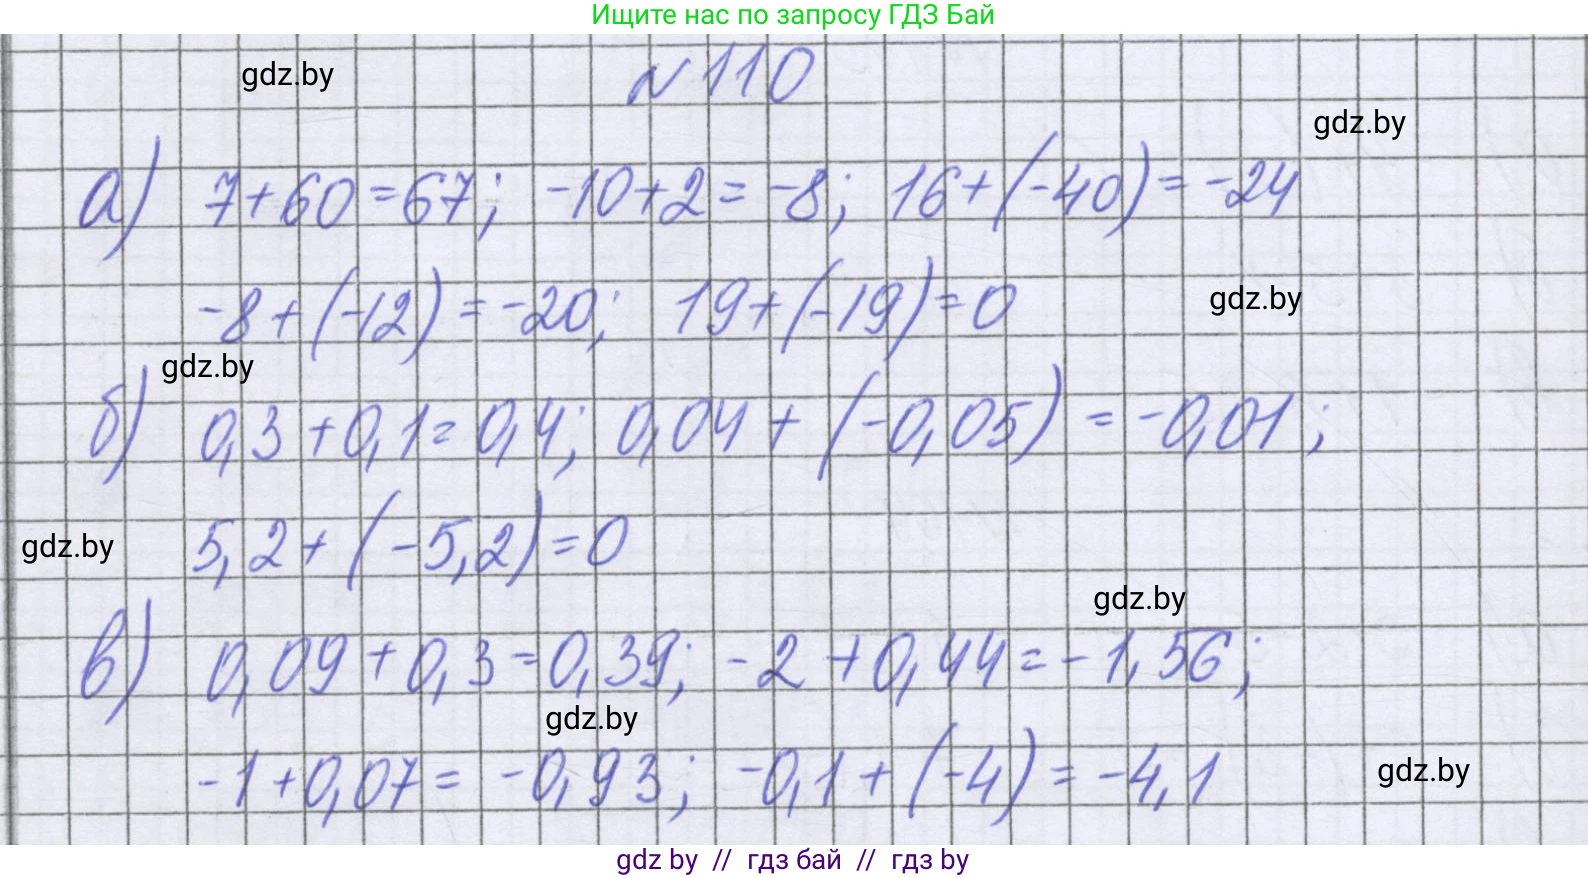 Ищите нас по запросу ГДЗ Бай
gdz.by
№110
gdz.by
а) 7+60=67; -10+2=-8; 16+(-40)=-24
-8+(-12)=-20; 19+(-19)=0
gdz.by
gdz.by
б) 0,3+0,1=0,4; 0,04+(-0,05)=-0,01;
5,2+(-5,2)=0
gdz.by
gdz.by
в) 0,09+0,3=0,39; -2+0,44=-1,56;
gdz.by
-1+0,07=-0,93; -0,1+(-4)=-4,1
gdz.by
gdz by // гдз бай // гдз by